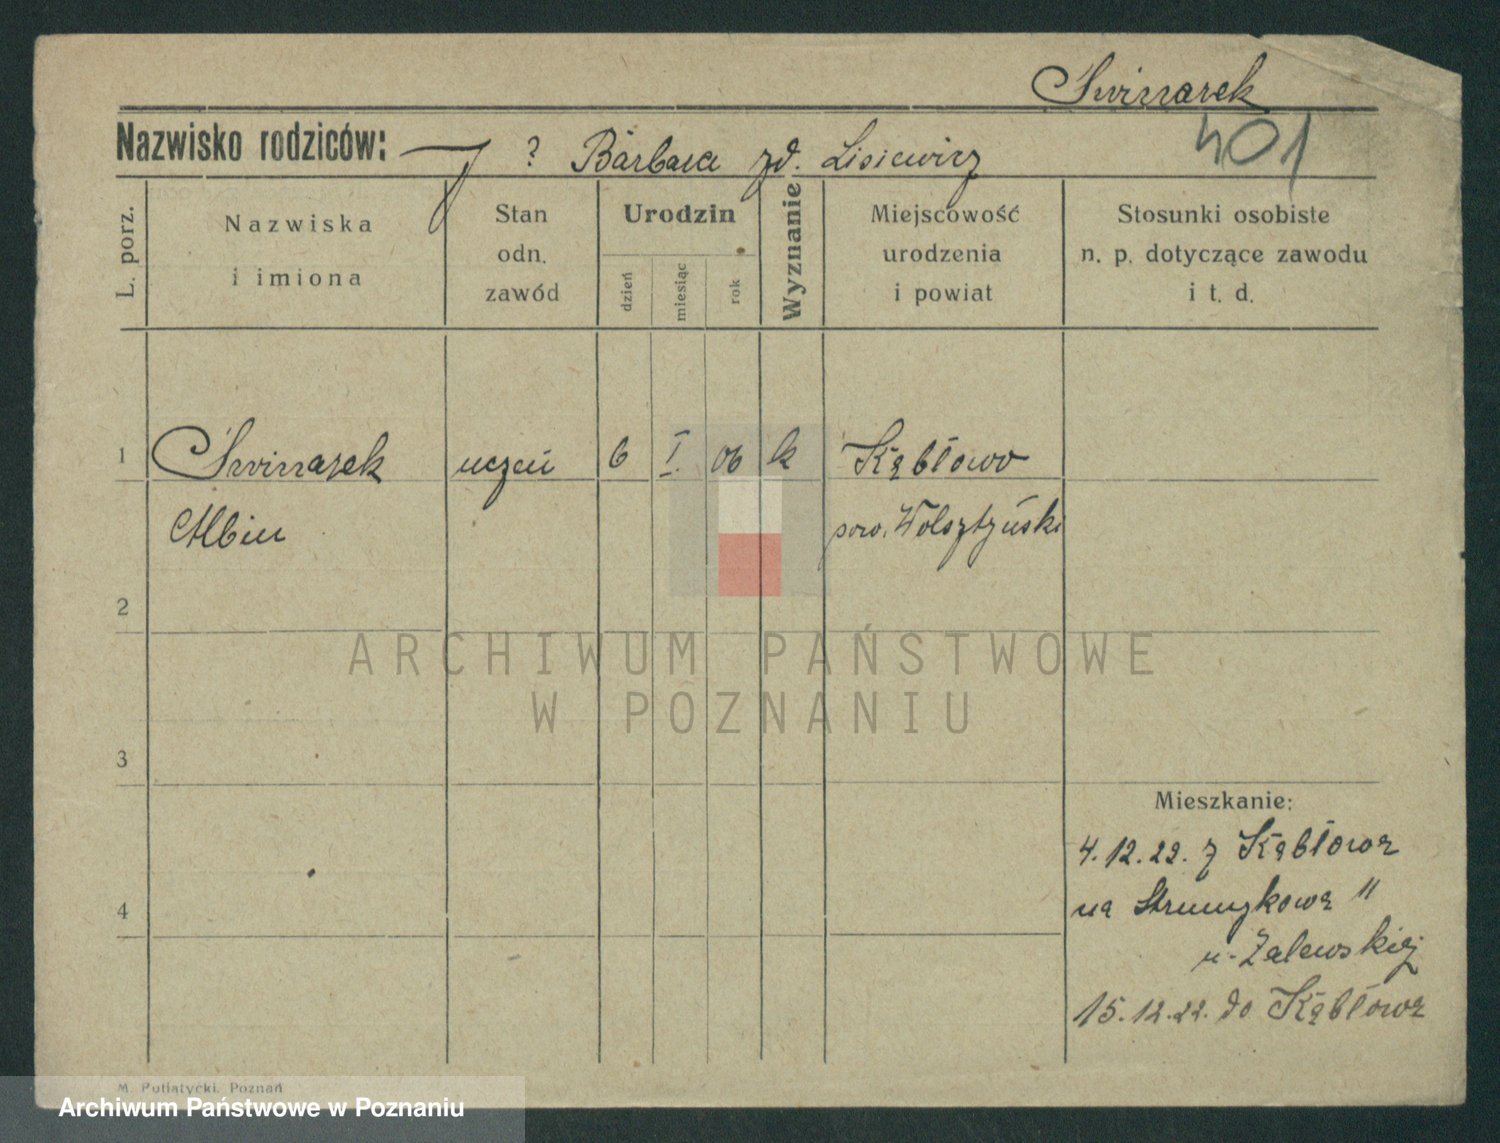 Swinarek
401
Nazwisko rodziców: ? Barbara zd. Lisiewicz
L. porz.
Nazwiska
i imiona
Stan
odn.
zawód
Urodzin
dzień
miesiąc
rok
Wyznanie
Miejscowość
urodzenia
i powiat
Stosunki osobiste
n. p. dotyczące zawodu
i t. d.
1 Swinarek uczeń 6 I. 06 k Kębłowo
Albin pow. Wolsztyński
2
ARCHIWUM PAŃSTWOWE
W POZNANIU
3
Mieszkanie:
4.12.22. z Kębłowa
na Strumykowa 11
u. Zalewskiej
4
15.12.22. do Kębłowa
M. Putiatycki, Poznań
Archiwum Państwowe w Poznaniu